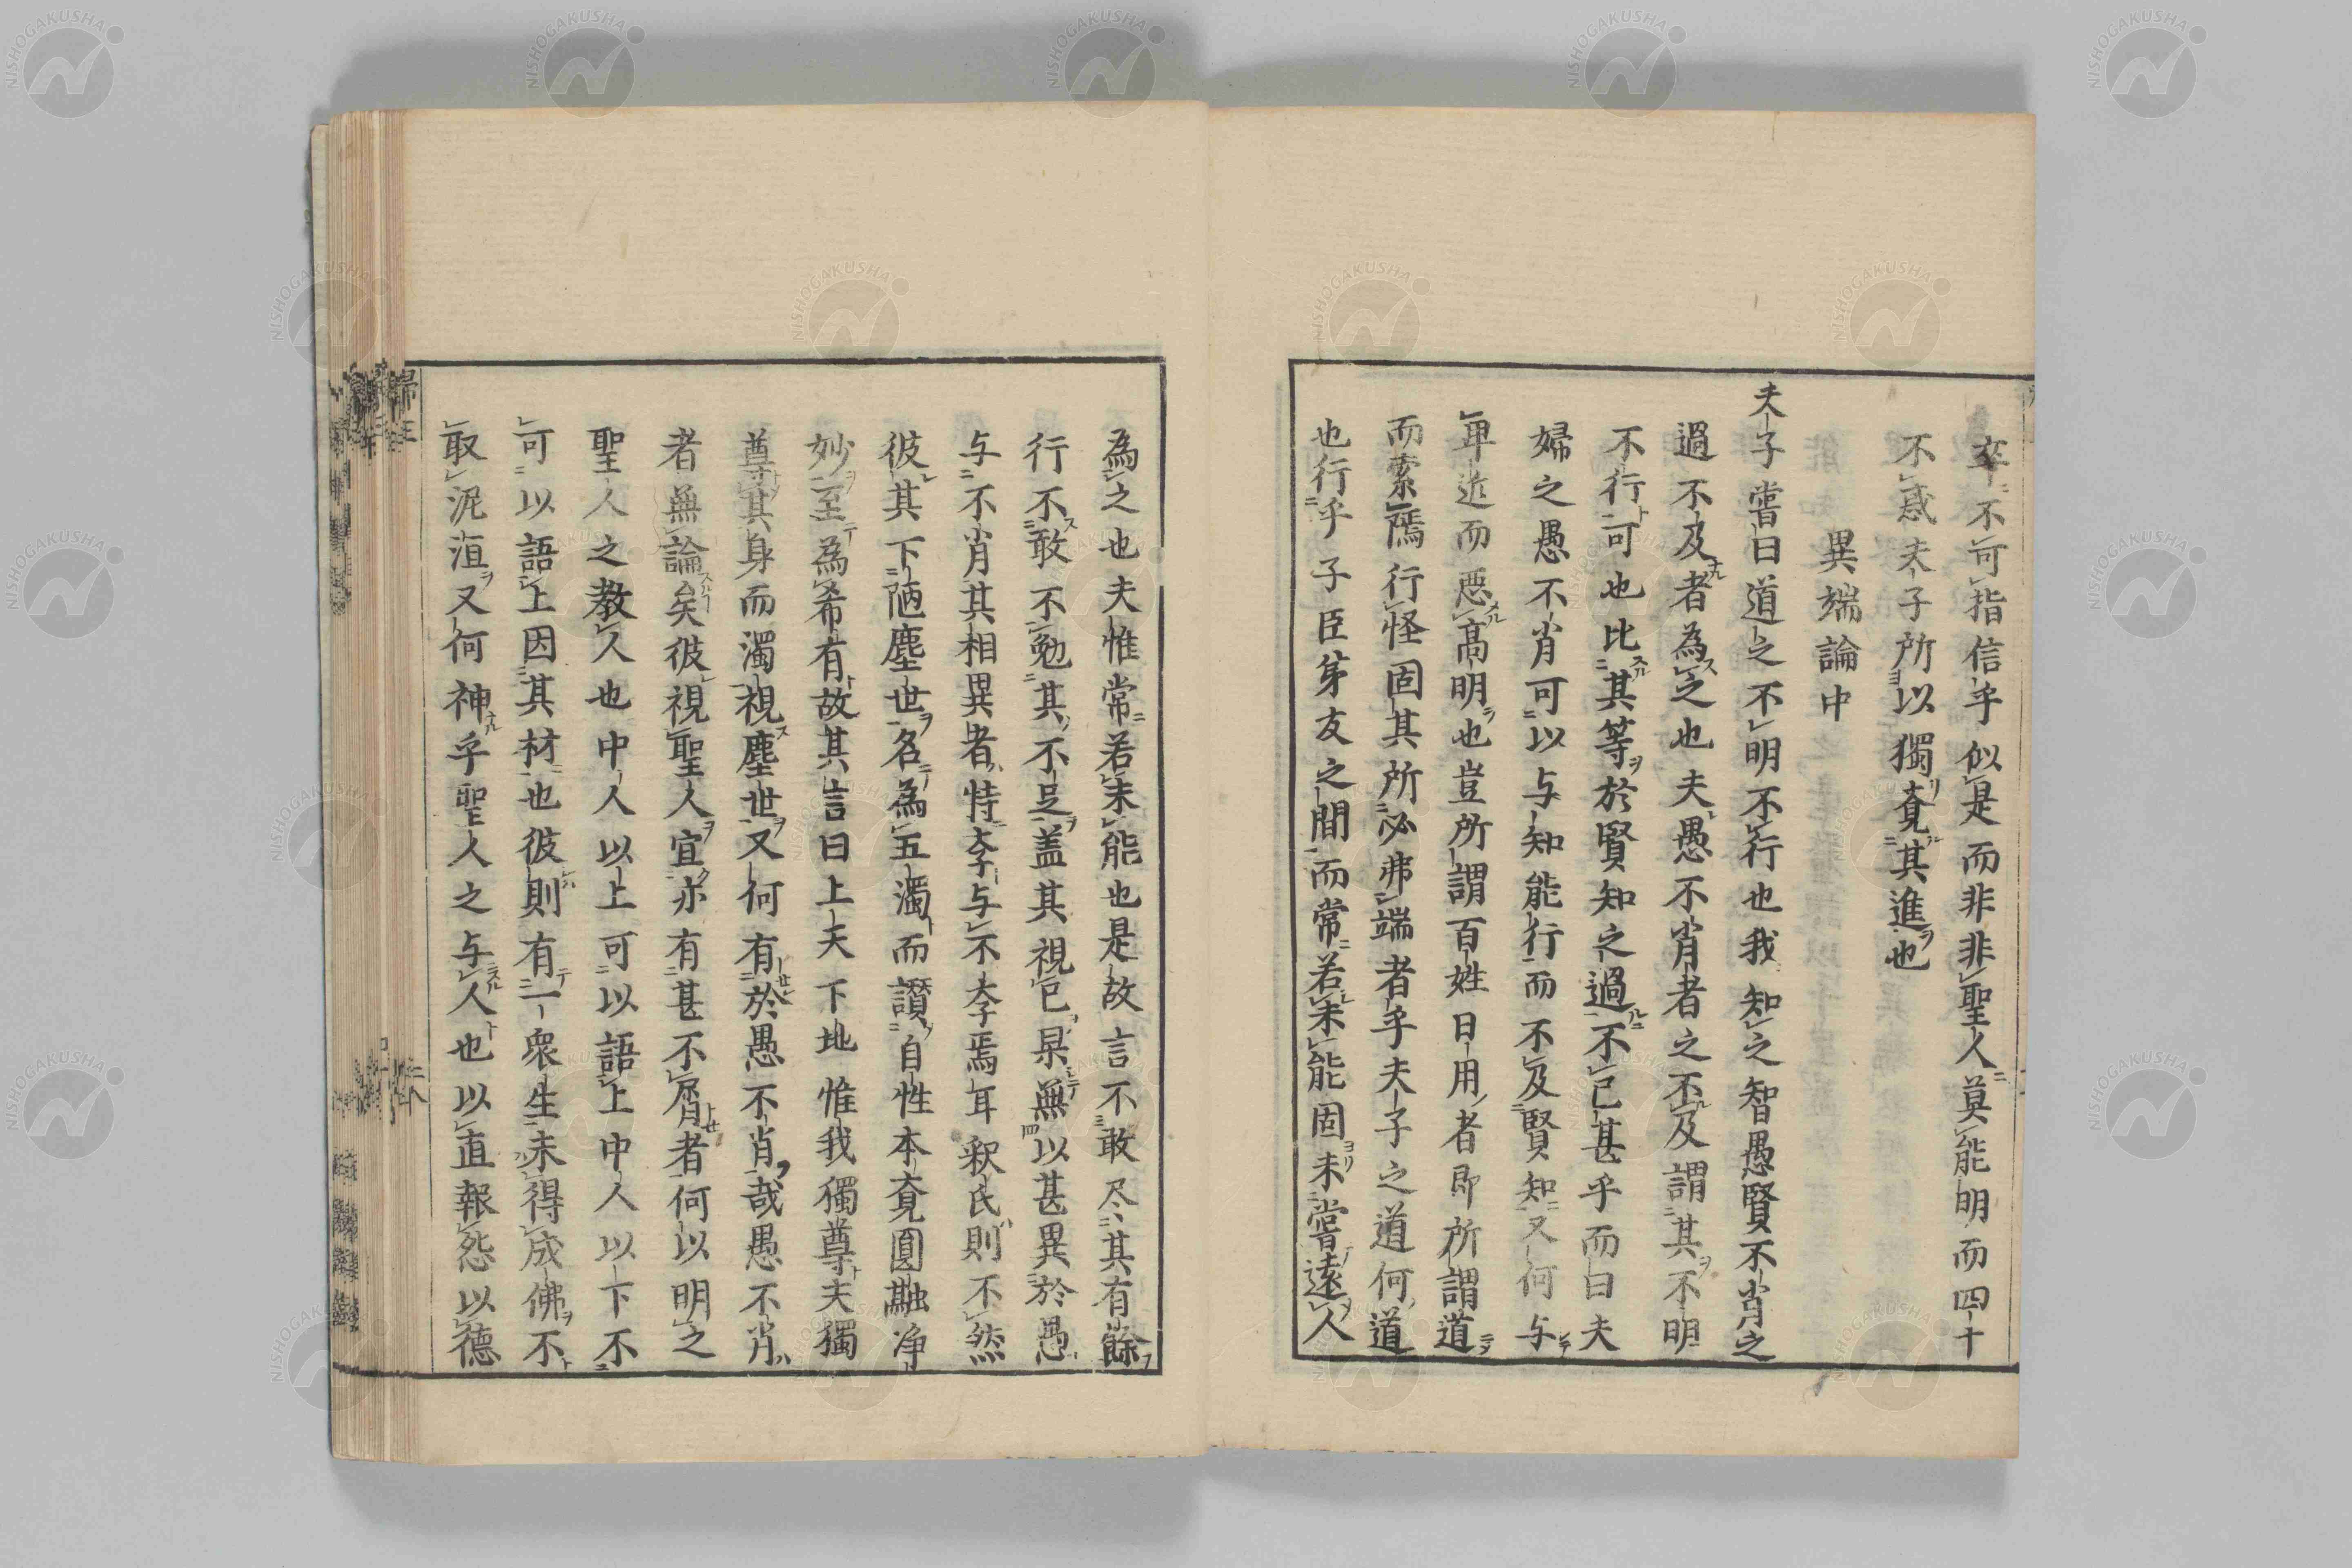 卒不可指信乎似是而非非聖人莫能明而四十
不惑夫子所以獨覔其進也
異端論中
夫子嘗曰道之不明不行也我知之智愚賢不肖之
過不及者為之也夫愚不肖者之不及謂其不明
不行可也比其等於賢知之過不已甚乎而曰夫
婦之愚不肖可以与知能行而不及賢知又何与
卑近而惡高明也豈所謂百姓日用者即所謂道
而索隱行怪固其所必弗端者乎夫子之道何道
也行乎子臣弟友之間而常若未能固未嘗遠人
為之也夫惟常若未能也是故言不敢尽其有餘
行不敢不勉其不足盖其視已杲無以甚異於愚
与不肖其相異者特李与不李焉耳釈氏則不然
彼其下陋塵世名為五濁而讃自性本覔圓融净
妙至為希有故其言曰上天下地惟我獨尊夫獨
尊其身而濁視塵世又何有於愚不肖哉愚不肖
者無論矣彼視聖人宜亦有甚不屑者何以明之
聖人之教人也中人以上可以語上中人以下不
可以語上因其材也彼則有一衆生未得成佛不
取泥洹又何神乎聖人之与人也以直報怨以德
NISHOGAKUSHA